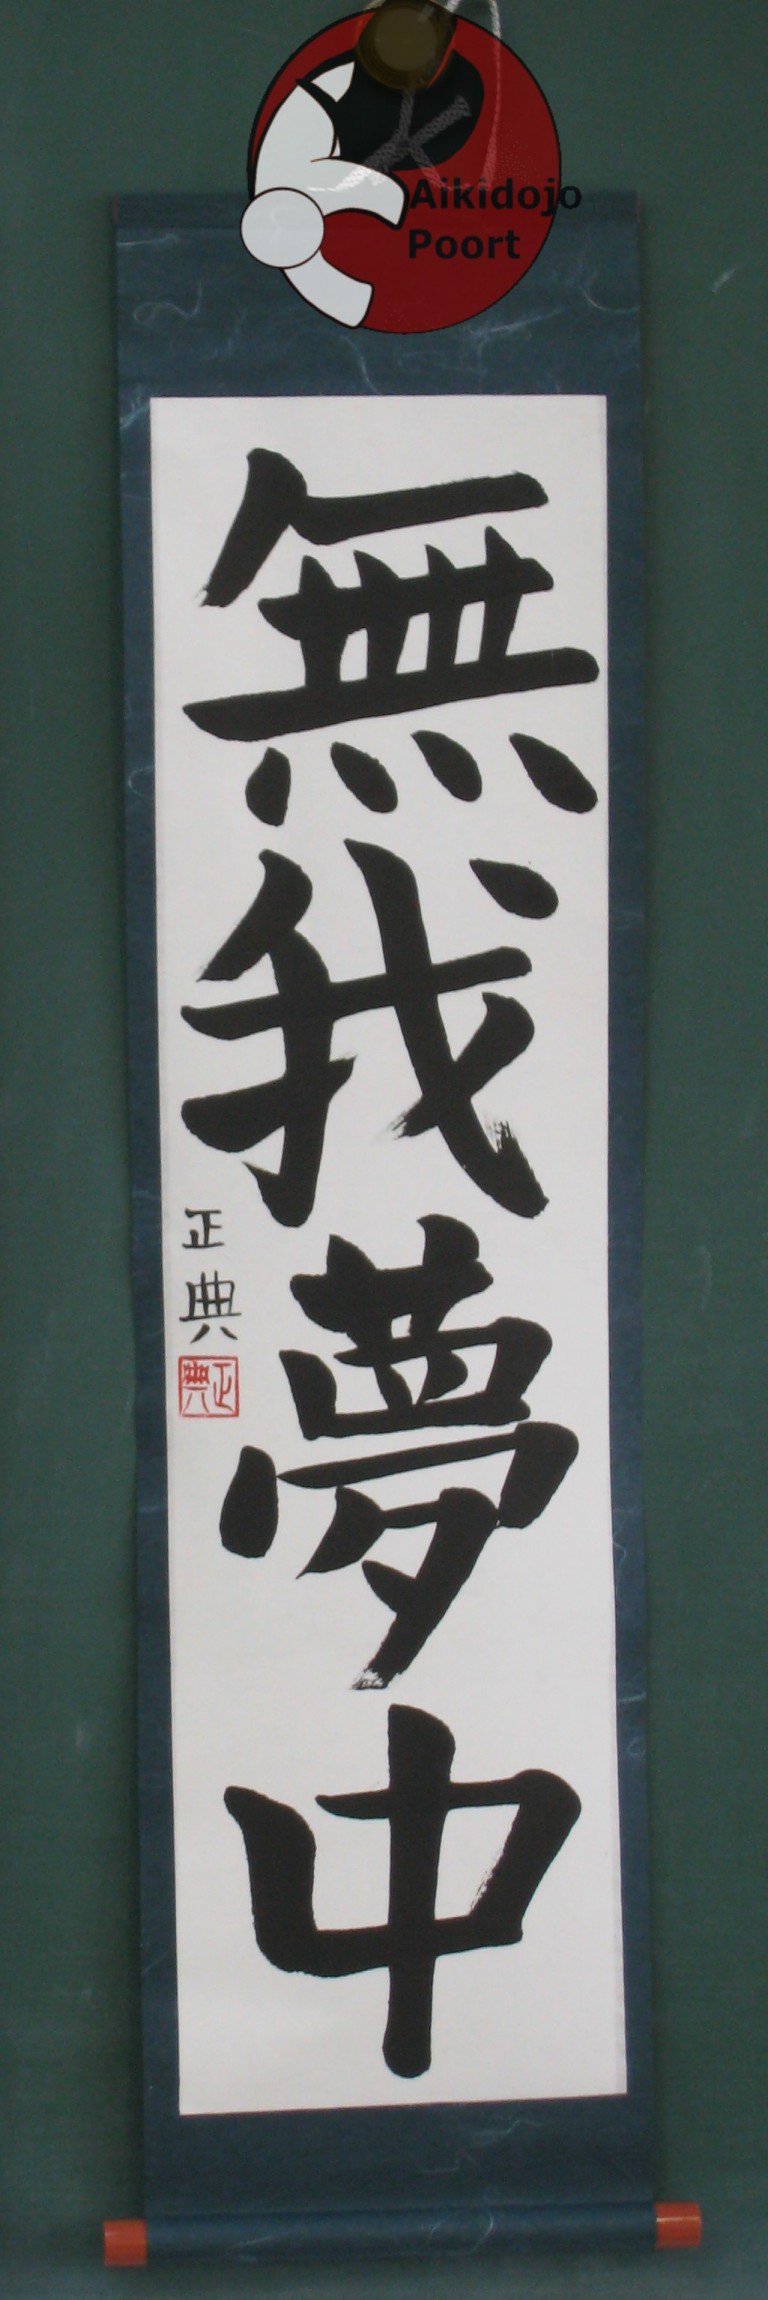 Aikidojo
Poort
無我夢中
正典
正典